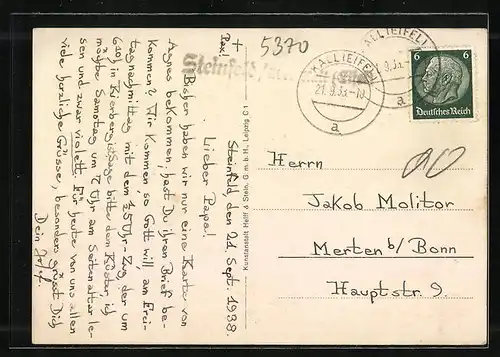 5370
Steinfeld
KALL(EIFEL)
21.9.38.-10
a
KALL(EIFEL)
a
6
6
Deutsches Reich
Kunstanstalt Helff & Stein, G.m.b.H., Leipzig C 1
Herrn
Jakob Molitor
Merten b/Bonn
Hauptstr. 9.
+
Pax!
Steinfeld, den 21. Sept. 1938.
Lieber Papa!
Bisher haben wir nur eine Karte von
Agnes bekommen, hast Du ihren Brief be-
kommen? Wir kommen so Gott will, am Frei-
tagnachmittag mit dem 5 Uhr-Zug, der um
610 in Kierberg ist. Sage bitte dem Küster, ich
möchte Samstag um 7 Uhr am Seitenaltar le-
sen und zwar violett. Für heute von uns allen
viele herzliche Grüsse, besonders grüsst Dich
Dein